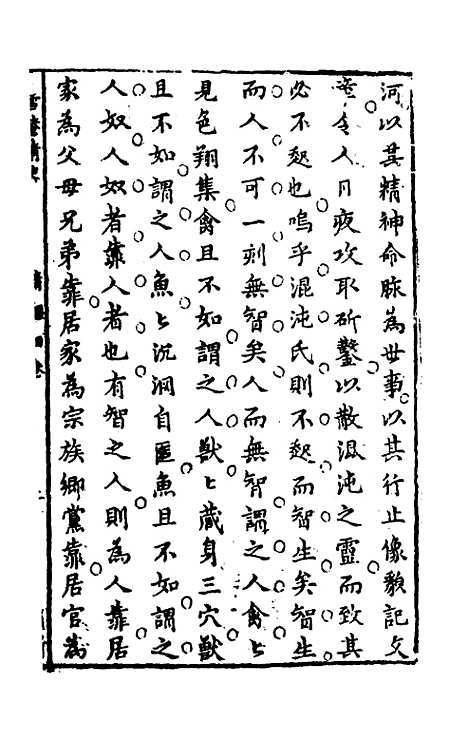 河以其精神命脉為世事以其行止像貌記文
令人日夜攻取斫鑿以散混沌之靈而致其
必不起也嗚乎混沌氏則不起而智生矣智生
而人不可一刻無智矣人而無智謂之人禽〻
見色翔集禽且不如謂之人獸〻藏身三穴獸
且不如謂之人魚〻沉泂自匿魚且不如謂之
人奴人奴者靠人者也有智之人則為人靠居
家為父母兄弟靠居家為宗族鄉黨靠居官為